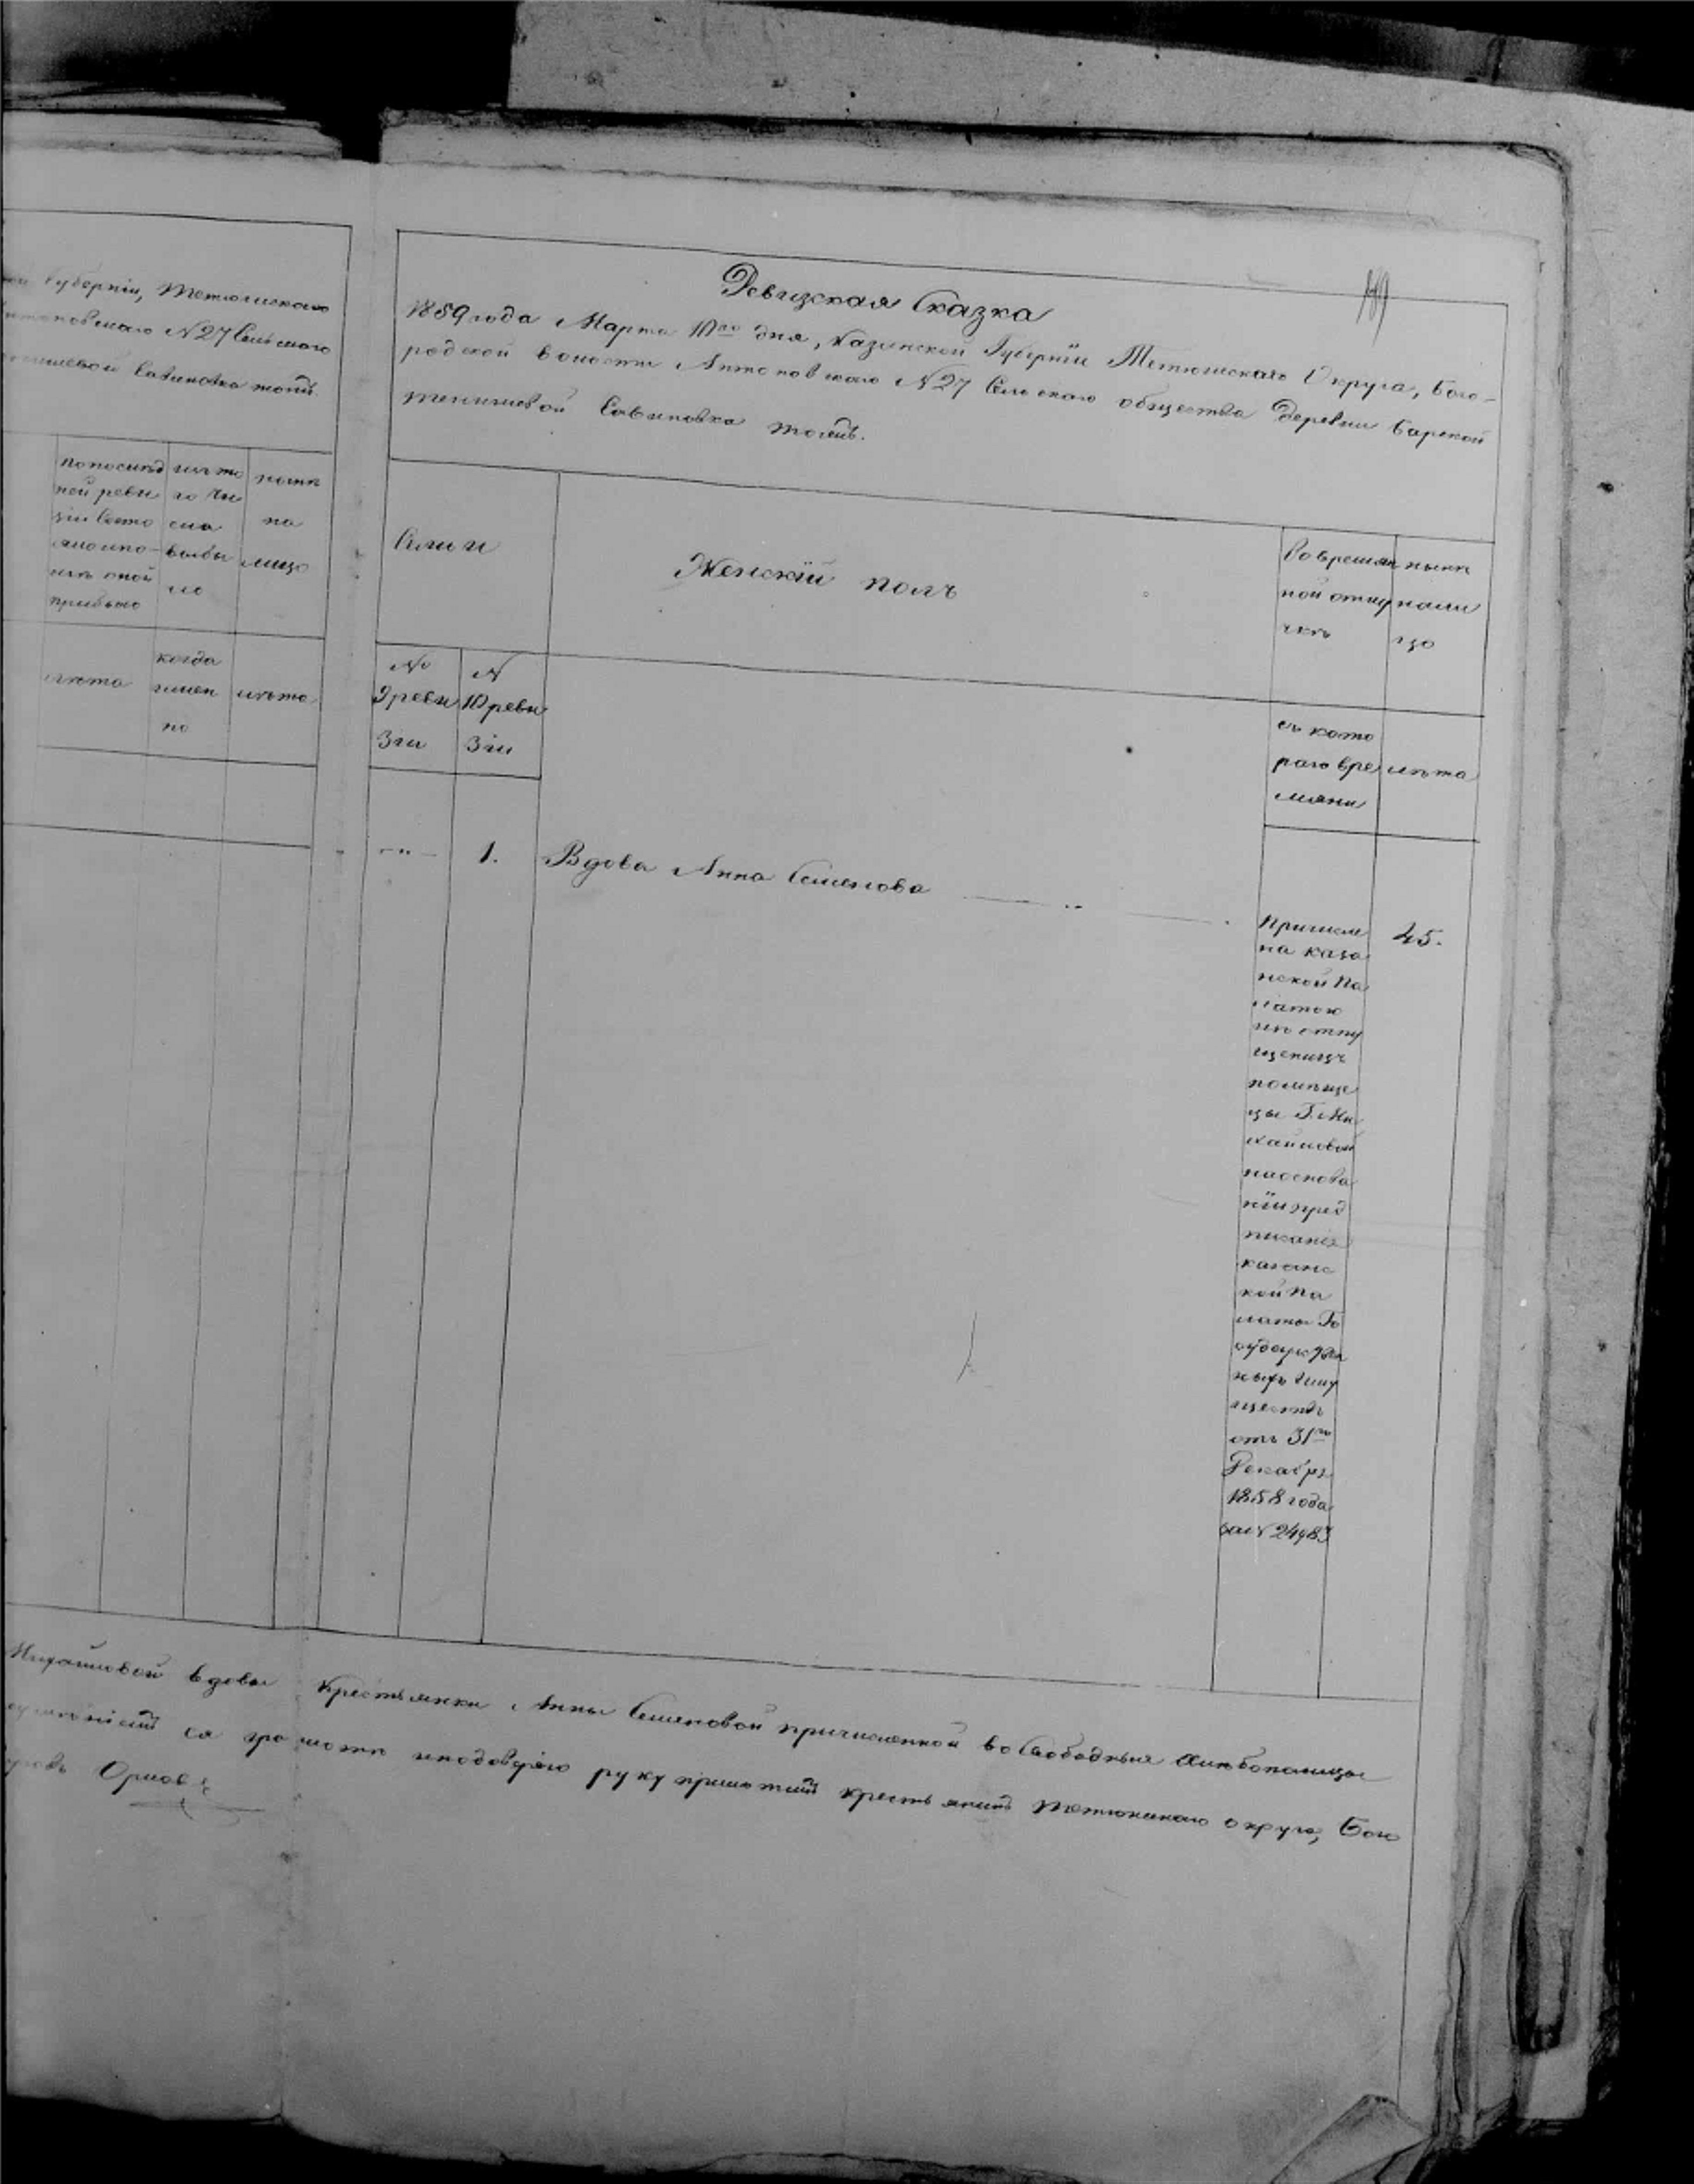 Губерніи, Тетюшскаго
N 27 Сельскаго
Савиновка тожъ.
по послѣд
ней реви
зіи Состо
яло и по-
слѣ оной
прибыло
изъ то
го чи
сла
выбы
ло
нынѣ
на
лицо
лѣта
когда
имен
но
лѣта
Ревизская Сказка
1859 года Марта 10го дня, Казанской Губерніи Тетюшскаго Округа, Бого-
родской волости Антоновскаго N 27 Сельскаго общества Деревни Барской
тенишевой Савиновка тожъ.
Семьи
Женскій полъ
Во времян
ной отлу
чкѣ
нынѣ
нали
цо
No
9 реви
зіи
N
10 реви
зіи
съ кото
раго вре
мяни
лѣта
1. Вдова Анна Семенова
45.
Причисле
на каза
нской Па
латою
изъ отпу
щенныхъ
помѣщи
цы Г. Ми
хайловой
на основа
ніи пред
писанія
казанс
кой Па
латы Го
сударствен
ныхъ Иму
ществъ
отъ 31го
Декабря
1858 года
за N 24983
Михайловой вдовы Крестьянки Анны Семеновой причисленной во Свободныя хлѣбопашцы
ея грамотѣ и по довѣрію руку приложилъ крестьянинъ Тетюшскаго округа, Бого
Орловъ